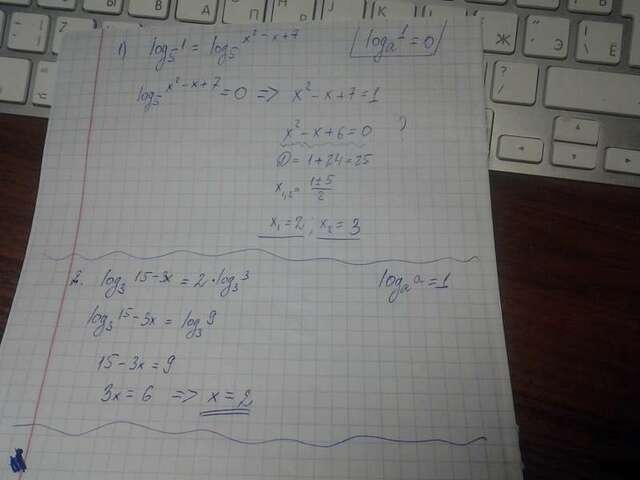 1) log₅ 1 = log₅ x² − x + 7
log_a 1 = 0
log₅ x² − x + 7 = 0 => x² − x + 7 = 1
x² − x + 6 = 0
D = 1 + 24 = 25
x₁,₂ = (1 ± 5)/2
x₁ = 2 ; x₂ = 3
2. log₃ 15 − 3x = 2 · log₃ 3
log_a a = 1
log₃ 15 − 3x = log₃ 9
15 − 3x = 9
3x = 6 => x = 2
Ж
Э